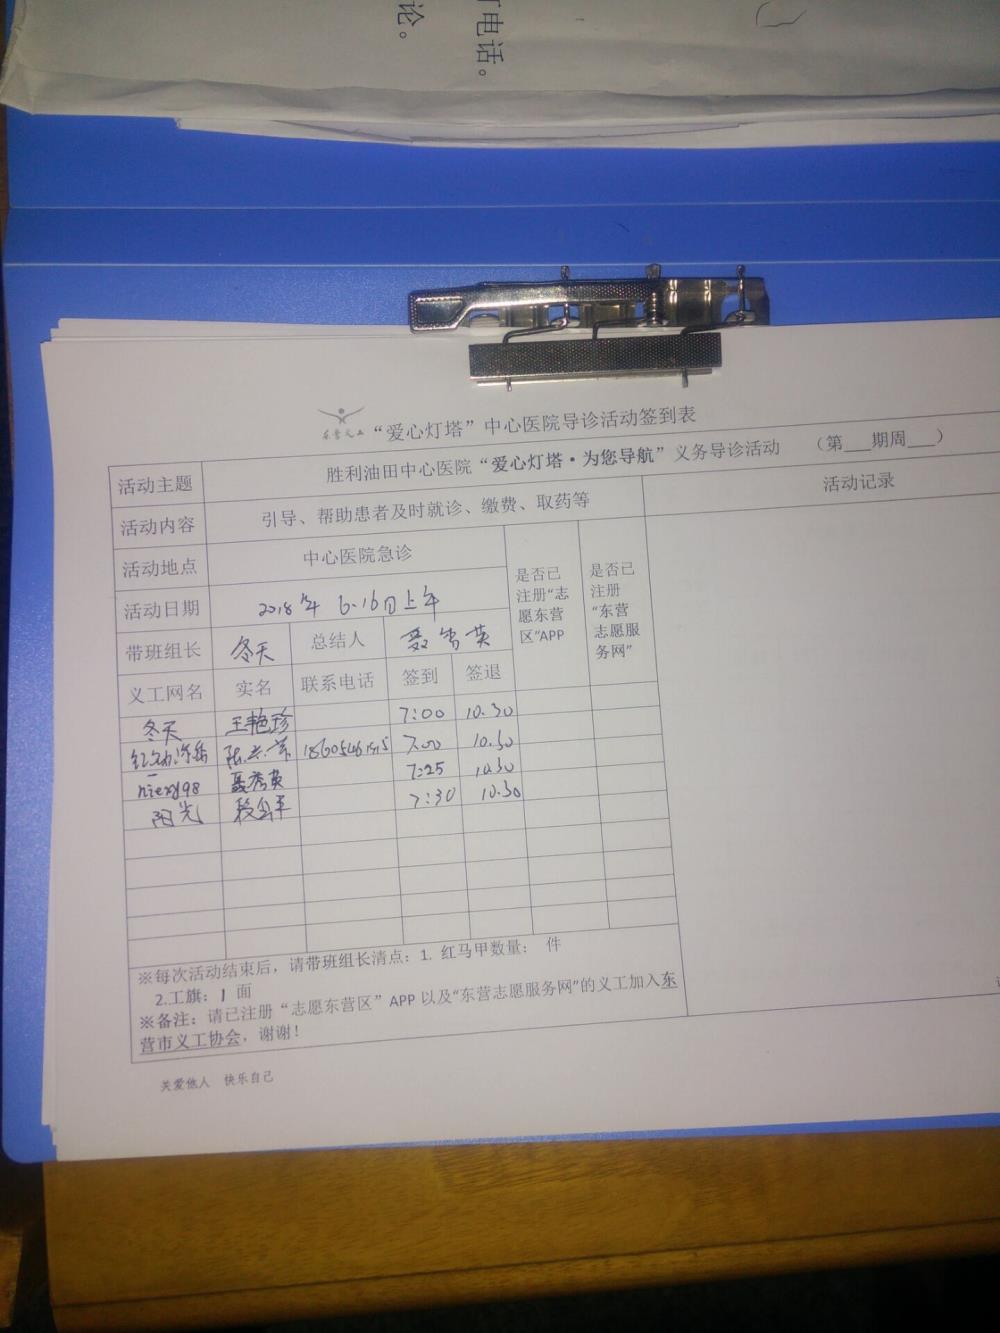 论。
订电话。
东营义工
“爱心灯塔”中心医院导诊活动签到表
活动主题 胜利油田中心医院“爱心灯塔·为您导航”义务导诊活动 （第___期周___）
活动内容 引导、帮助患者及时就诊、缴费、取药等 活动记录
活动地点 中心医院急诊 是否已注册“志愿东营区”APP 是否已注册“东营志愿服务网”
活动日期 2018年 6.16日上午
带班组长 冬天 总结人 聂秀英
义工网名 实名 联系电话 签到 签退
冬天 王艳珍 7:00 10.30
7.00 10.30
niexy98 聂秀英 7:25 10.30
阳光 7:30 10.30
※每次活动结束后，请带班组长清点：1. 红马甲数量： 件
2.工旗：1 面
※备注：请已注册“志愿东营区”APP 以及“东营志愿服务网”的义工加入东
营市义工协会，谢谢！
关爱他人 快乐自己